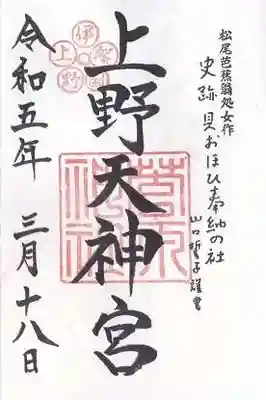 松尾芭蕉翁処女作
史跡 貝おほひ奉納の社
山口誓子謹書
上野天神宮
伊賀國
上野
令和五年 三月十八日